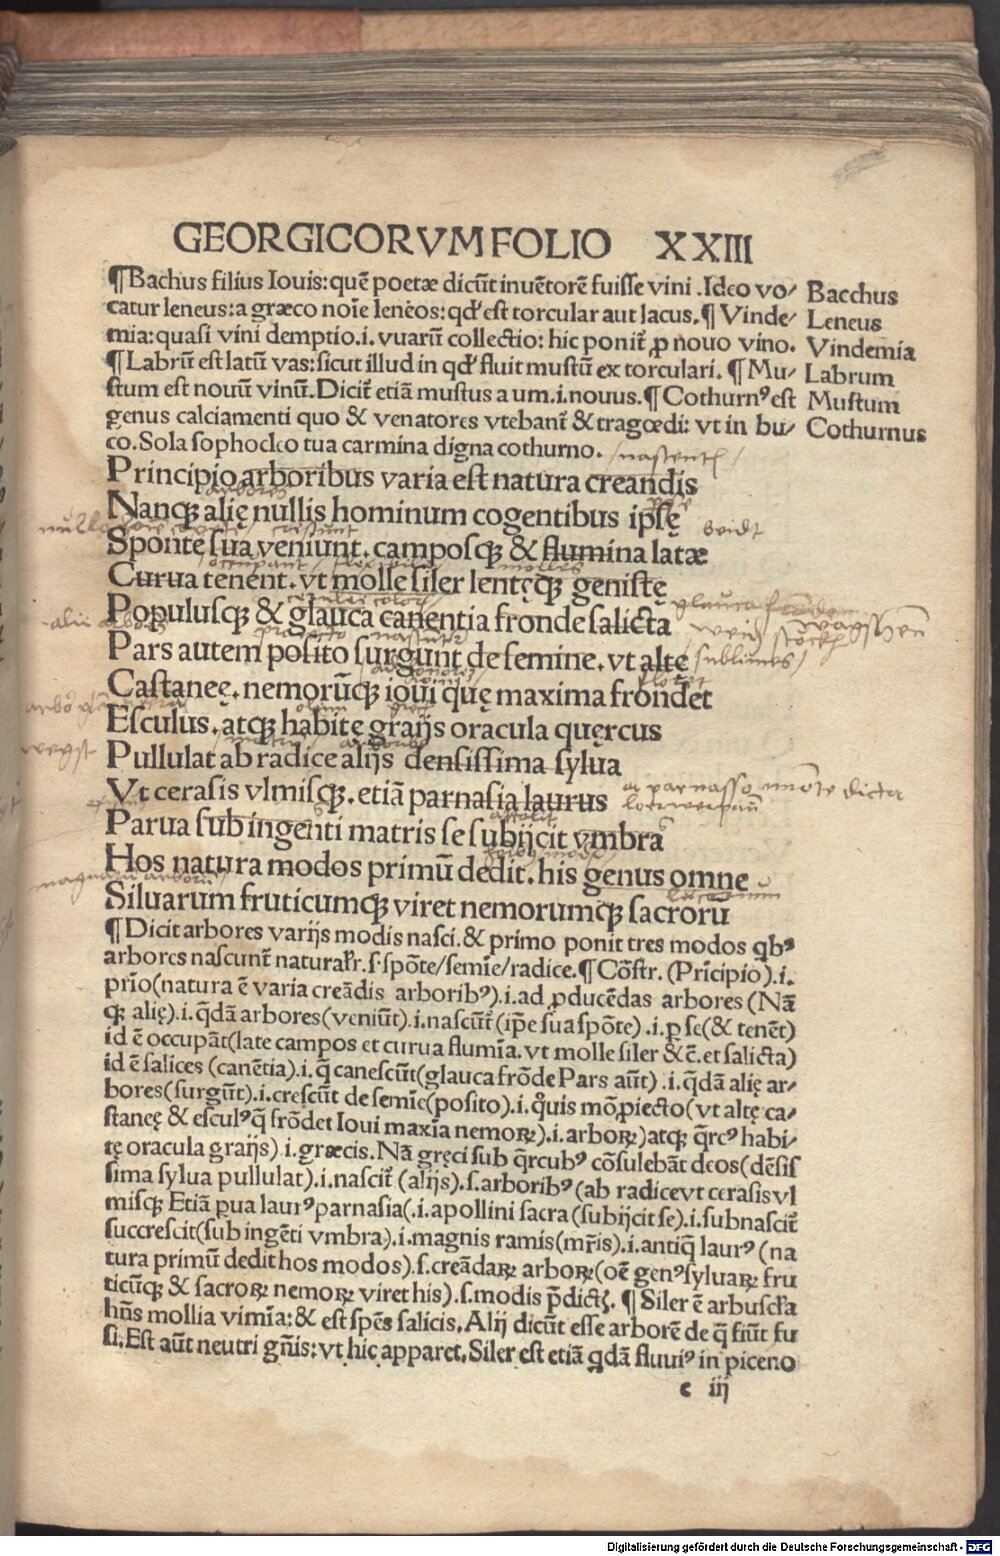 GEORGICORVM FOLIO XXIII
¶Bachus filius Iouis: quē poetæ dicūt inuētorē fuisse vini .Ideo vo/ Bacchus
catur leneus: a græco noīe lenéos: qd' est torcular aut lacus. ¶ Vinde/ Leneus
mia: quasi vini demptio.i. vuarū collectio: hic poniť ꝓ nouo vino. Vindemia
¶Labrū est latū vas: sicut illud in qd' fluit mustū ex torculari. ¶ Mu/ Labrum
stum est nouū vinū. Diciť etiā mustus a um.i.nouus. ¶ Cothurnꝰ est Mustum
genus calciamenti quo & venatores vtebanť & tragœdi: vt in bu/ Cothurnus
co. Sola sophocleo tua carmina digna cothurno.
Principio arboribus varia est natura creandis
arbores
Nanqꝫ alię nullis hominum cogentibus ipsę
Sponte sua veniunt. camposqꝫ & flumina latæ
occupant molles
Curua tenent. vt molle siler lentęqꝫ genistę
Populusqꝫ & glauca canentia fronde salicta
Pars autem posito surgunt de semine. vt altę sublimes
Castanęę. nemorūqꝫ ioui quę maxima frondet
Esculus. atqꝫ habitę graijs oracula quercus
Pullulat ab radice alijs densissima sylua
Vt cerasis vlmisqꝫ. etiā parnasia laurus a parnasso mōte dicta
Parua sub ingenti matris se subijcit vmbra
Hos natura modos primū dedit. his genus omne
Siluarum fruticumqꝫ viret nemorumqꝫ sacrorū
¶Dicit arbores varijs modis nasci. & primo ponit tres modos qbꝰ
arbores nascunť naturaľr. s. spōte/semīe/radice. ¶Cōstr. (Prīcipio).i.
prīo(natura ē varia creādis arboribꝰ).i.ad ꝓducēdas arbores (Nā
qꝫ alię).i.qdā arbores(veniūt).i.nascūť (ipę sua spōte) .i.ꝑ se(& tenēt)
id ē occupāt(late campos et curua flumīa. vt molle siler &c̄. et salicta)
id ē salices (canētia).i. q̄ canescūt(glauca frōde Pars aūt) .i.qdā alię ar/
bores(surgūt).i.crescūt de semīe(posito).i. quis mō ꝓiecto(vt altę ca/
stanęę & esculꝰ q̄ frōdet Ioui maxīa nemoꝝ).i.arboꝝ)atqꝫ q̄rcꝰ habi/
tę oracula graijs) i.græcis. Nā gręci sub q̄rcubꝰ cōsulebāt deos(dēsis
sima sylua pullulat).i.nasciť (alijs).s.arboribꝰ (ab radice vt cerasis vl
misqꝫ Etiā ꝑua laurꝰ parnasia(.i.apollini sacra (subijcit se).i.subnasciť
succrescit(sub ingēti vmbra).i.magnis ramis(mr̄is).i.antiq̄ laurꝰ (na
tura primū dedit hos modos).s.creādaꝝ arboꝝ(oē genꝰ syluaꝝ fru
ticūqꝫ & sacroꝝ nemoꝝ viret his).s.modis p̄dictꝭ. ¶ Siler ē arbuscľa
hn̄s mollia vimīa: & est spēs salicis. Alij dicūt esse arborē de q̄ fiūt fu
si. Est aūt neutri gn̄is: vt hic apparet. Siler est etiā qdā fluuiꝰ in piceno
c iij
Digitalisierung gefördert durch die Deutsche Forschungsgemeinschaft - DFG